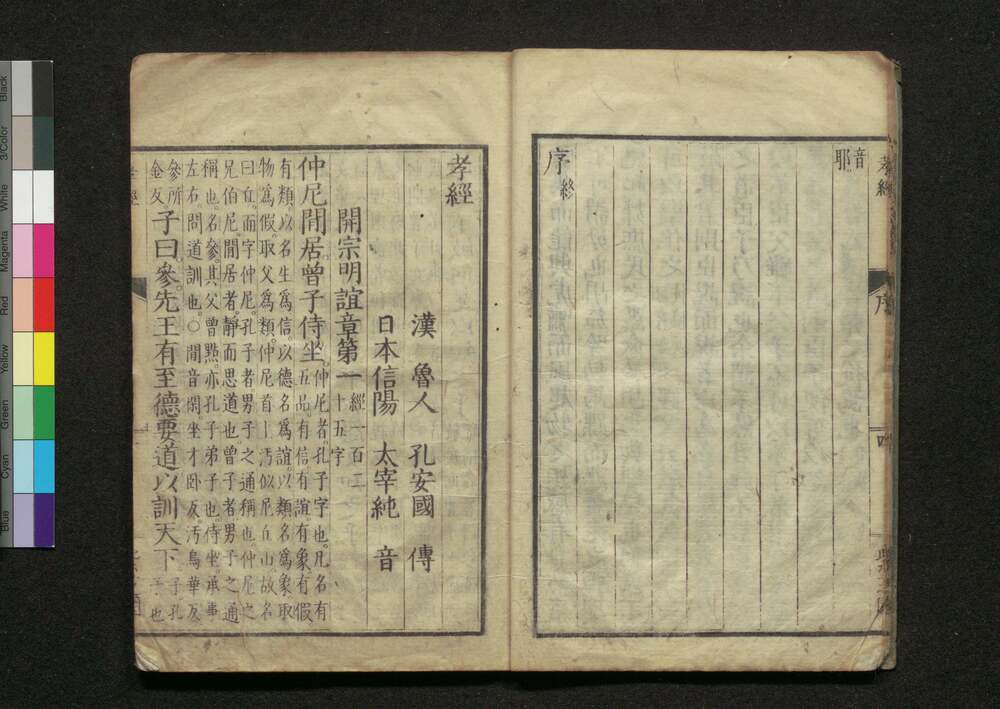 孝經
序
四
音
耶
序終
孝經
漢 魯人 孔安國 傳
日本信陽 太宰純 音
開宗明誼章第一 經一百二
十五字
仲尼閒居曾子侍坐 仲尼者。孔子字也。凡名有
五品。有信有誼有象有假
有類。以名生爲信。以德名爲誼。以類名爲象。取
物爲假。取父爲類。仲尼首上汚。似尼丘山。故名
曰丘。而字仲尼。孔子者男子之通稱也。仲尼之
兄伯尼。閒居者。靜而思道也。曾子者男子之通
稱也。名參。其父曾點。亦孔子弟子也。侍坐承事
左右。問道訓也。○閒音閑。坐才卧反。汚烏華反
參所
金反。子曰。參。先王有至德要道。以訓天下 子孔
子也
Blue
Cyan
Green
Yellow
Red
Magenta
White
3/Color
Black